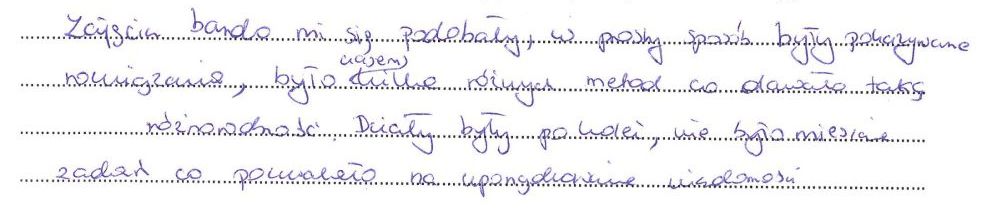 Zajęcia bardo mi się podobały, w prosty sposób były pokazywane
rozwiązania, było czasem kilka różnych metod co dawało taką
różnorodność. Działy były po kolei, nie było mieszane
zadań co pozwalało na uporządkowanie wiadomości